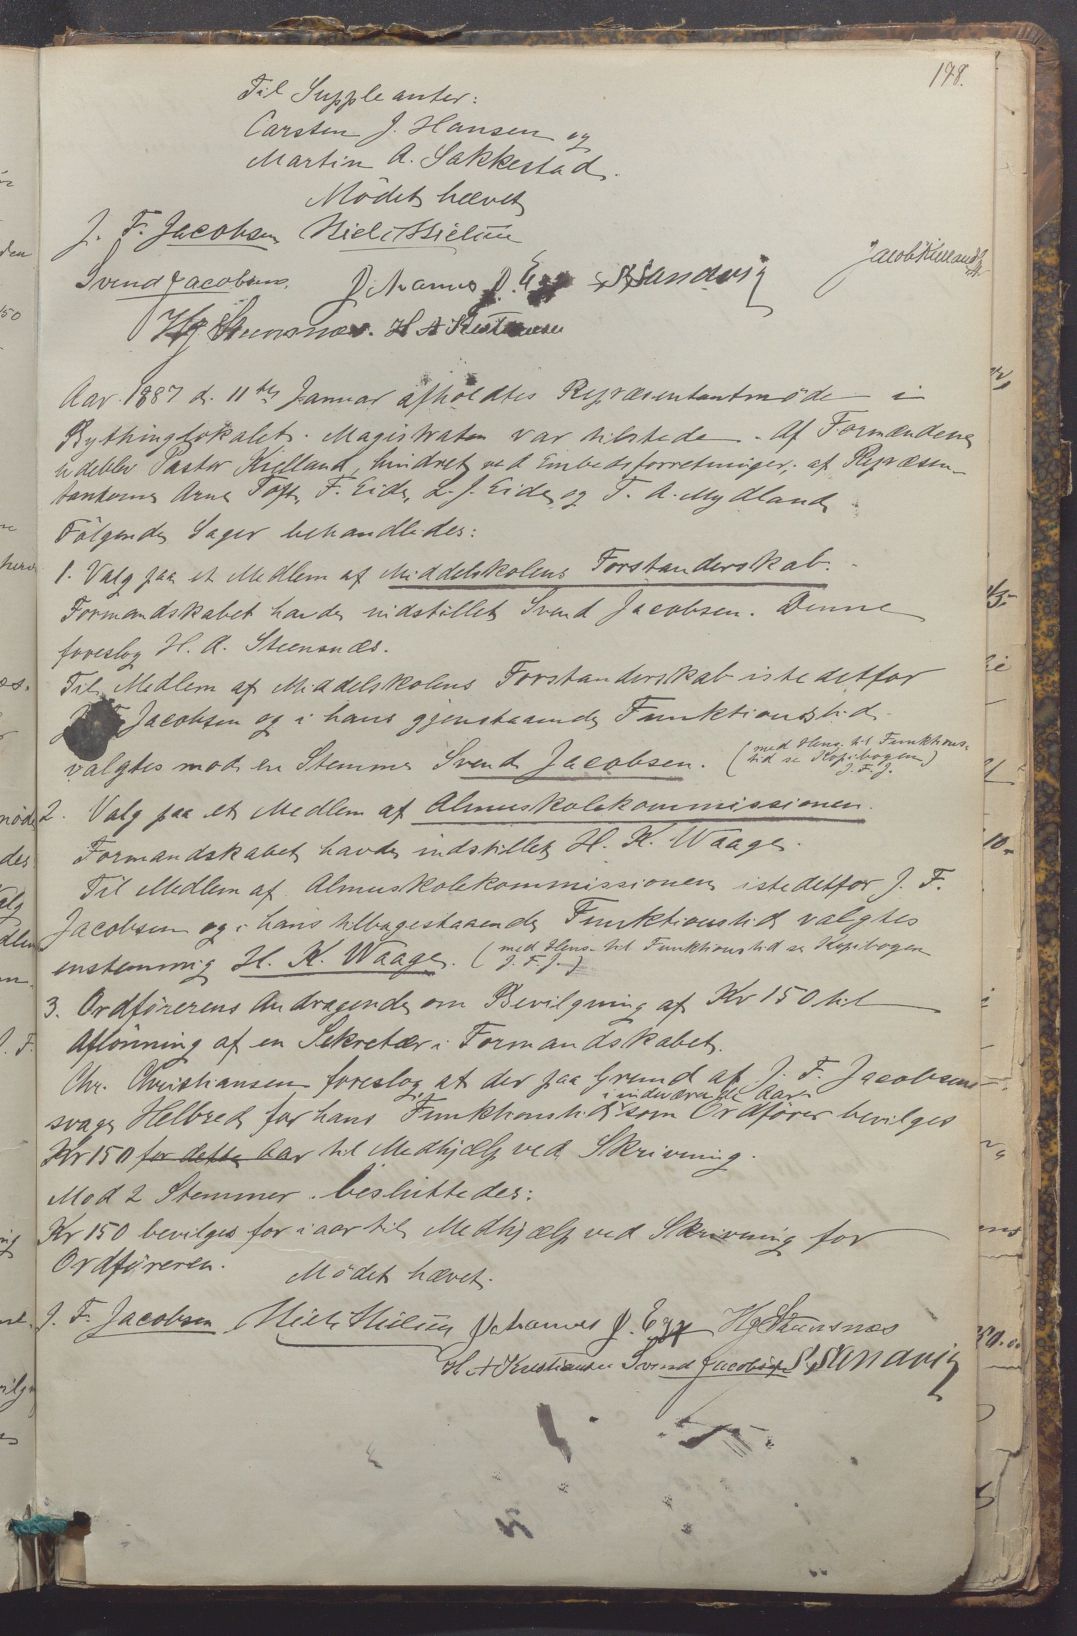 198.
Til Suppleanter:
Carsten J. Hansen og
Martin A. Sakkestad.
Mödet hævet
J. F. Jacobsen Niels Nielsen
Jacob Kielland
Svend Jacobsen. Johannes J. Egge S Sandvig
Hg Steensnæs. H A Kristiansen
Aar 1887 d. 11te Januar afholdtes Repræsentantmöde i
Bythinglokalet. Magistraten var tilstede. Af Formændene
udeblev Pastor Kielland, hindret ved Embedsforretninger. af Repræsen-
tanterne Arne Toft, F. Eide, L. J. Eide og T. A. Mydland
Fölgende Sager behandledes:
1. Valg paa et Medlem af Middelskolens Forstanderskab.
Formandskabet havde indstillet Svend Jacobsen. Denne
foreslog H. A. Steensnæs.
Til Medlem af Middelskolens Forstanderskab istedetfor
Jacobsen og i hans gjenstaaende Funktionstid
valgtes mod en Stemme Svend Jacobsen. (med Hens. til Funktions-
tid se Kopibogen)
J. F. J.
2. Valg paa et Medlem af Almuskolekommissionen.
Formandskabet havde indstillet H. K. Waage.
Til Medlem af Almuskolekommissionen istedetfor J. F.
Jacobsen og i hans tilbagestaaende Funktionstid valgtes
enstemmig H. K. Waage. (med Hens. til Funktionstid se Kopibogen
J. F. J.)
3. Ordförerens Andragende om Bevilgning af Kr 150 til
Aflönning af en Sekretær i Formandskabet.
Chr. Christiansen foreslog at der paa Grund af J. F. Jacobsens
svage Helbred for hans Funktionstid i indeværende Aar som Ordförer bevilges
Kr 150 for dette Aar til Medhjælp ved Skrivning.
Mod 2 Stemmer besluttedes:
Kr 150 bevilges for iaar til Medhjælp ved Skrivning for
Ordföreren.
Mödet hævet.
J. F. Jacobsen Niels Nielsen Johannes J. Egge Hg Steensnæs
H. A Kristiansen Svend Jacobsen S Sandvig